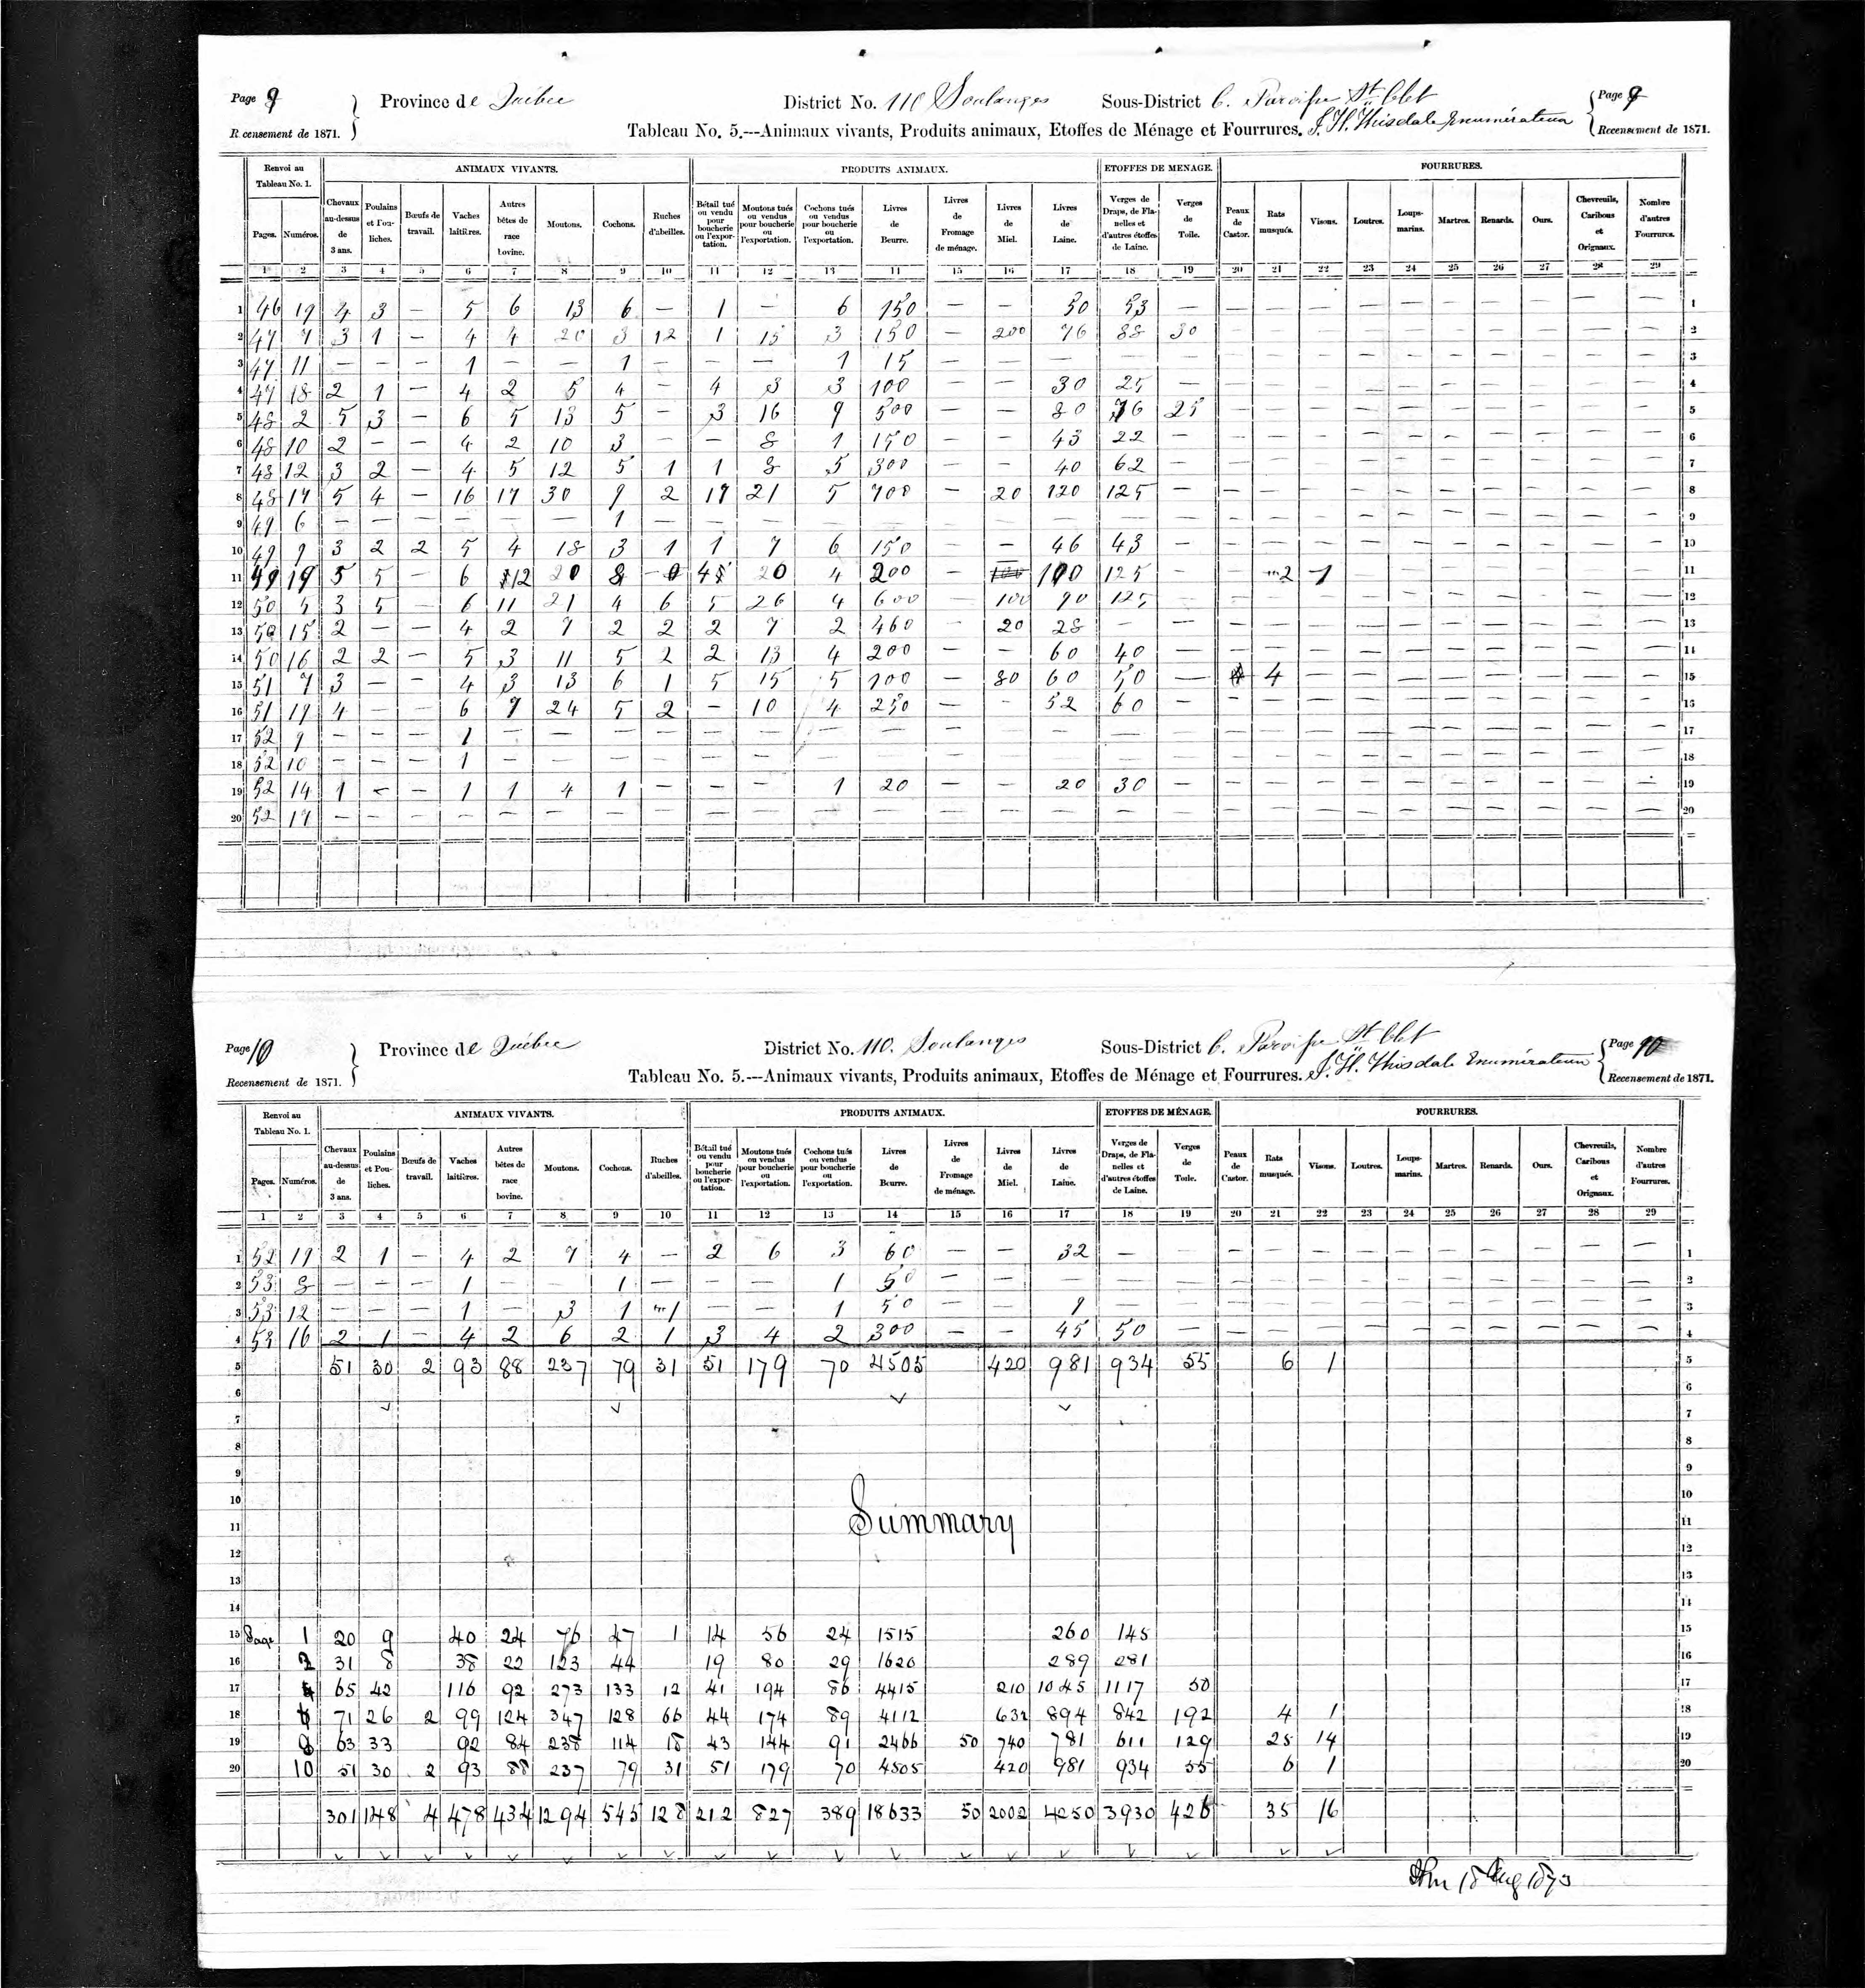 Page 9
Province de Québec
District No. 110 Soulanges
Sous-District C. Paroisse St Clet
Page 9
Recensement de 1871.
Tableau No. 5.---Animaux vivants, Produits animaux, Etoffes de Ménage et Fourrures.
Enumérateur
Recensement de 1871.
Renvoi au Tableau No. 1. ANIMAUX VIVANTS. PRODUITS ANIMAUX. ETOFFES DE MENAGE. FOURRURES.
Pages. Numéros. Chevaux au-dessus de 3 ans. Poulains et Pouliches. Bœufs de travail. Vaches laitières. Autres bêtes de race bovine. Moutons. Cochons. Ruches d'abeilles. Bétail tué ou vendu pour boucherie ou l'exportation. Moutons tués ou vendus pour boucherie ou l'exportation. Cochons tués ou vendus pour boucherie ou l'exportation. Livres de Beurre. Livres de Fromage de ménage. Livres de Miel. Livres de Laine. Verges de Draps, de Flanelles et d'autres étoffes de Laine. Verges de Toile. Peaux de Castor. Rats musqués. Visons. Loutres. Loups-marins. Martres. Renards. Ours. Chevreuils, Caribous et Orignaux. Nombre d'autres Fourrures.
1 2 3 4 5 6 7 8 9 10 11 12 13 14 15 16 17 18 19 20 21 22 23 24 25 26 27 28 29
1 46 19 4 3 — 5 6 13 6 — 1 — 6 150 — — 50 53 — — — — — — — — — — — 1
2 47 7 3 1 — 4 4 20 3 12 1 15 3 150 — 200 76 88 30 — — — — — — — — — — 2
3 47 11 — — — 1 — — 1 — — — 1 15 — — — — — — — — — — — — — — — 3
4 47 18 2 1 — 4 2 5 4 — 4 3 3 100 — — 30 25 — — — — — — — — — — — 4
5 48 2 5 3 — 6 5 13 5 — 3 16 9 500 — — 80 76 25 — — — — — — — — — — 5
6 48 10 2 — — 4 2 10 3 — — 8 1 150 — — 43 22 — — — — — — — — — — — 6
7 48 12 3 2 — 4 5 12 5 1 1 8 5 300 — — 40 62 — — — — — — — — — — — 7
8 48 17 5 4 — 16 17 30 9 2 17 21 5 700 — 20 120 125 — — — — — — — — — — — 8
9 49 6 — — — — — — 1 — — — — — — — — — — — — — — — — — — — — 9
10 49 9 3 2 2 5 4 18 3 1 1 7 6 150 — — 46 43 — — — — — — — — — — — 10
11 49 19 5 5 — 6 12 20 8 20 4 200 — 100 125 — — 2 1 11
12 50 5 3 5 — 6 11 21 4 6 5 26 4 600 — 100 90 125 — — — — — — — — — — — 12
13 50 15 2 — — 4 2 7 2 2 2 7 2 460 — 20 28 — — — — — — — — — — — — 13
14 50 16 2 2 — 5 3 11 5 2 2 13 4 200 — — 60 40 — — — — — — — — — — — 14
15 51 7 3 — — 4 3 13 6 1 5 15 5 100 — 80 60 50 — 4 — — — — — — — — 15
16 51 19 4 — — 6 7 24 5 2 — 10 4 250 — — 52 60 — — — — — — — — — — — 16
17 52 9 — — — 1 — — — — — — — — — — — — — — — — — — — — — — — 17
18 52 10 — — — 1 — — — — — — — — — — — — — — — — — — — — — — — 18
19 52 14 1 — — 1 1 4 1 — — — 1 20 — — 20 30 — — — — — — — — — — — 19
20 52 17 — — — — — — — — — — — — — — — — — — — — — — — — — — — 20
Page 10
Province de Québec
District No. 110. Soulanges
Sous-District C. Paroisse St Clet
Page 10
Recensement de 1871.
Tableau No. 5.---Animaux vivants, Produits animaux, Etoffes de Ménage et Fourrures.
Enumérateur
Recensement de 1871.
Renvoi au Tableau No. 1. ANIMAUX VIVANTS. PRODUITS ANIMAUX. ETOFFES DE MÉNAGE. FOURRURES.
Pages. Numéros. Chevaux au-dessus de 3 ans. Poulains et Pouliches. Bœufs de travail. Vaches laitières. Autres bêtes de race bovine. Moutons. Cochons. Ruches d'abeilles. Bétail tué ou vendu pour boucherie ou l'exportation. Moutons tués ou vendus pour boucherie ou l'exportation. Cochons tués ou vendus pour boucherie ou l'exportation. Livres de Beurre. Livres de Fromage de ménage. Livres de Miel. Livres de Laine. Verges de Draps, de Flanelles et d'autres étoffes de Laine. Verges de Toile. Peaux de Castor. Rats musqués. Visons. Loutres. Loups-marins. Martres. Renards. Ours. Chevreuils, Caribous et Orignaux. Nombre d'autres Fourrures.
1 2 3 4 5 6 7 8 9 10 11 12 13 14 15 16 17 18 19 20 21 22 23 24 25 26 27 28 29
1 52 19 2 1 — 4 2 7 4 — 2 6 3 60 — — 32 — — — — — — — — — — — — 1
2 53 8 — — — 1 — — 1 — — — 1 50 — — — — — — — — — — — — — — — 2
3 53 12 — — — 1 — 3 1 1 — — 1 50 — — 9 — — — — — — — — — — — — 3
4 53 16 2 1 — 4 2 6 2 1 3 4 2 300 — — 45 50 — — — — — — — — — — — 4
5 51 30 2 93 88 237 79 31 51 179 70 4505 420 981 934 55 6 1 5
6 6
7 7
8 8
9 9
10 10
11 Summary 11
12 12
13 13
14 14
15 Page 1 20 9 40 24 76 47 1 14 56 24 1515 260 145 15
16 2 31 8 38 22 123 44 19 80 29 1620 289 281 16
17 4 65 42 116 92 273 133 12 41 194 86 4415 210 1045 1117 50 17
18 6 71 26 2 99 124 347 128 66 44 174 89 4112 632 894 842 192 4 1 18
19 8 63 33 92 84 238 114 18 43 144 91 2466 50 740 781 611 129 25 14 19
20 10 51 30 2 93 88 237 79 31 51 179 70 4505 420 981 934 55 6 1 20
301 148 4 478 434 1294 545 128 212 827 389 18633 50 2002 4250 3930 426 35 16
18 Aug 1873